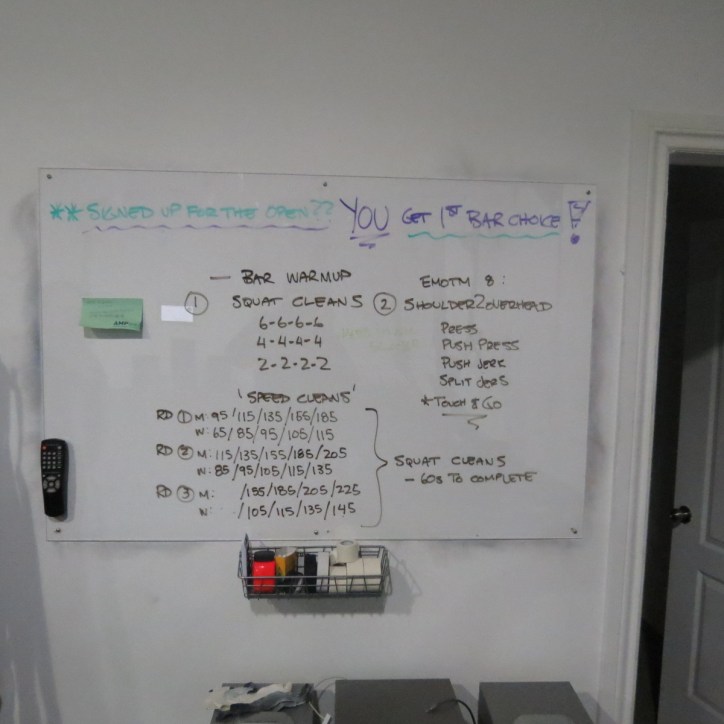 ** SIGNED UP FOR THE OPEN?? YOU GET 1ST BAR CHOICE!
— BAR WARMUP
① SQUAT CLEANS
6-6-6-6
4-4-4-4
2-2-2-2
EMOTM 8:
② SHOULDER2OVERHEAD
PRESS
PUSH PRESS
PUSH JERK
SPLIT JERKS
*TOUCH & GO
'SPEED CLEANS'
RD ① M: 95/115/135/155/185
W: 65/85/95/105/115
RD ② M: 115/135/155/185/205
W: 85/95/105/115/135
RD ③ M: /155/185/205/225
W: /105/115/135/145
SQUAT CLEANS
- 60s TO COMPLETE